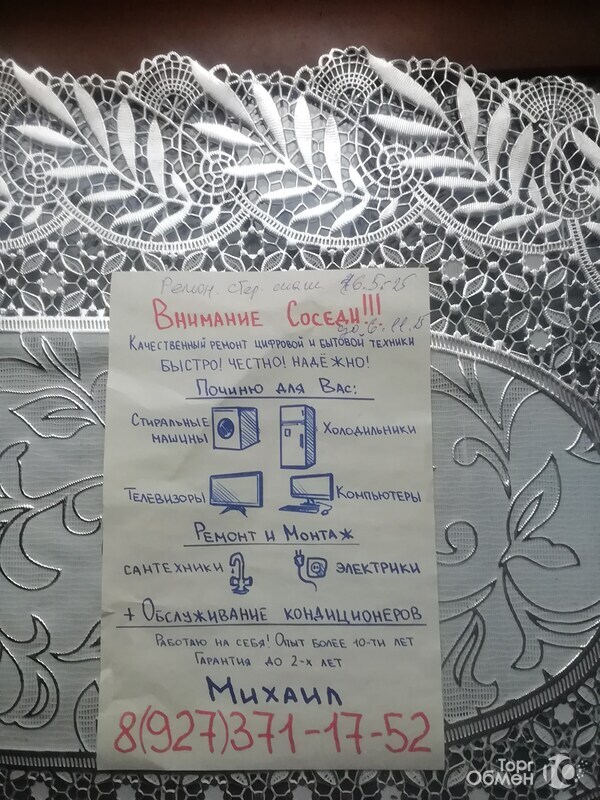 Ремон. стер. маш 16.5-25
Внимание Соседи!!!
Качественный ремонт цифровой и бытовой техники
Быстро! Честно! Надёжно!
Починю для Вас:
Стиральные машины
Холодильники
Телевизоры
Компьютеры
Ремонт и Монтаж
сантехники
электрики
+ Обслуживание кондиционеров
Работаю на себя! Опыт более 10-ти лет
Гарантия до 2-х лет
Михаил
8(927)371-17-52
Торг
Обмен